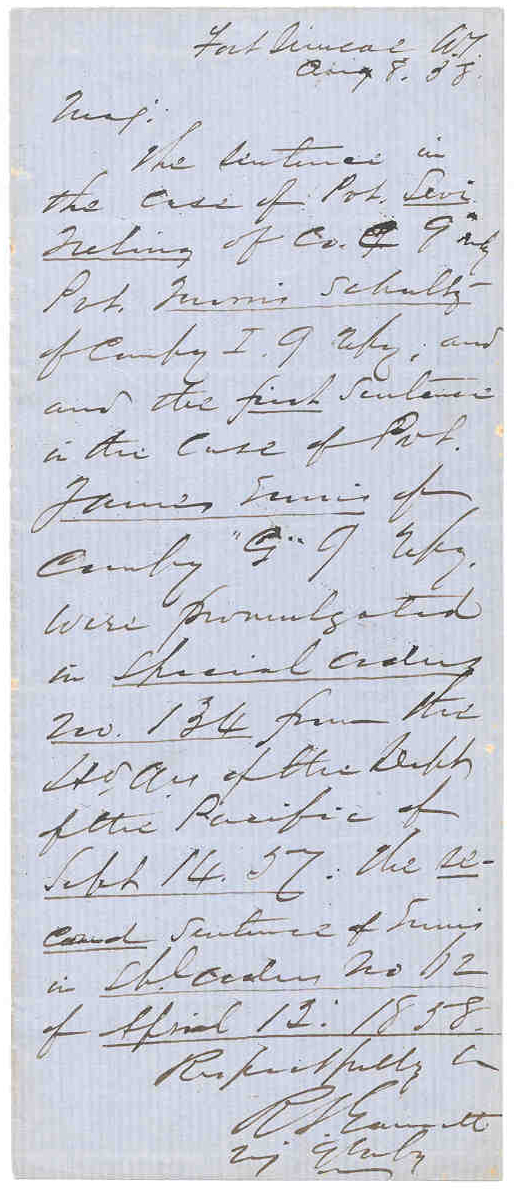 Fort Simcoe W.T.
Aug 8. 58.
Maj:
The sentence in
the case of Pvt. Levi
of Co. 9"
Pvt. Schultz
of Compy I. 9 Infy; and
and the first sentence
in the case of Pvt.
James Ennis of
Compy "G" 9 Infy.
were promulgated
in Special Orders
No. 134 from the
Hd. Qrs of the Dept
of the Pacific of
Sept 14. 57. the se-
cond sentence of Ennis
in Spl. Orders No 52
of April 12: 1858.
Respectfully
R S Garnett
Maj 9 Infy